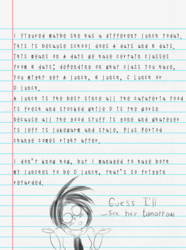 I figured maybe she has a different lunch today.
This is because school does A days and B days.
This means on A days we have certain classes
from B days; depending on what class you have,
you might get A lunch, B lunch, C lunch or
D lunch.
A lunch is the best since all the cafateria food
is fresh and stocked while D is the worse
because all the good stuff is gone and whatever
is left is lukewarm and stale. Plus period
change comes right after.
I don't know how, but I managed to have both
my lunches to be D lunch, that's so totally
retarded.
Guess I'll
see her tomorrow